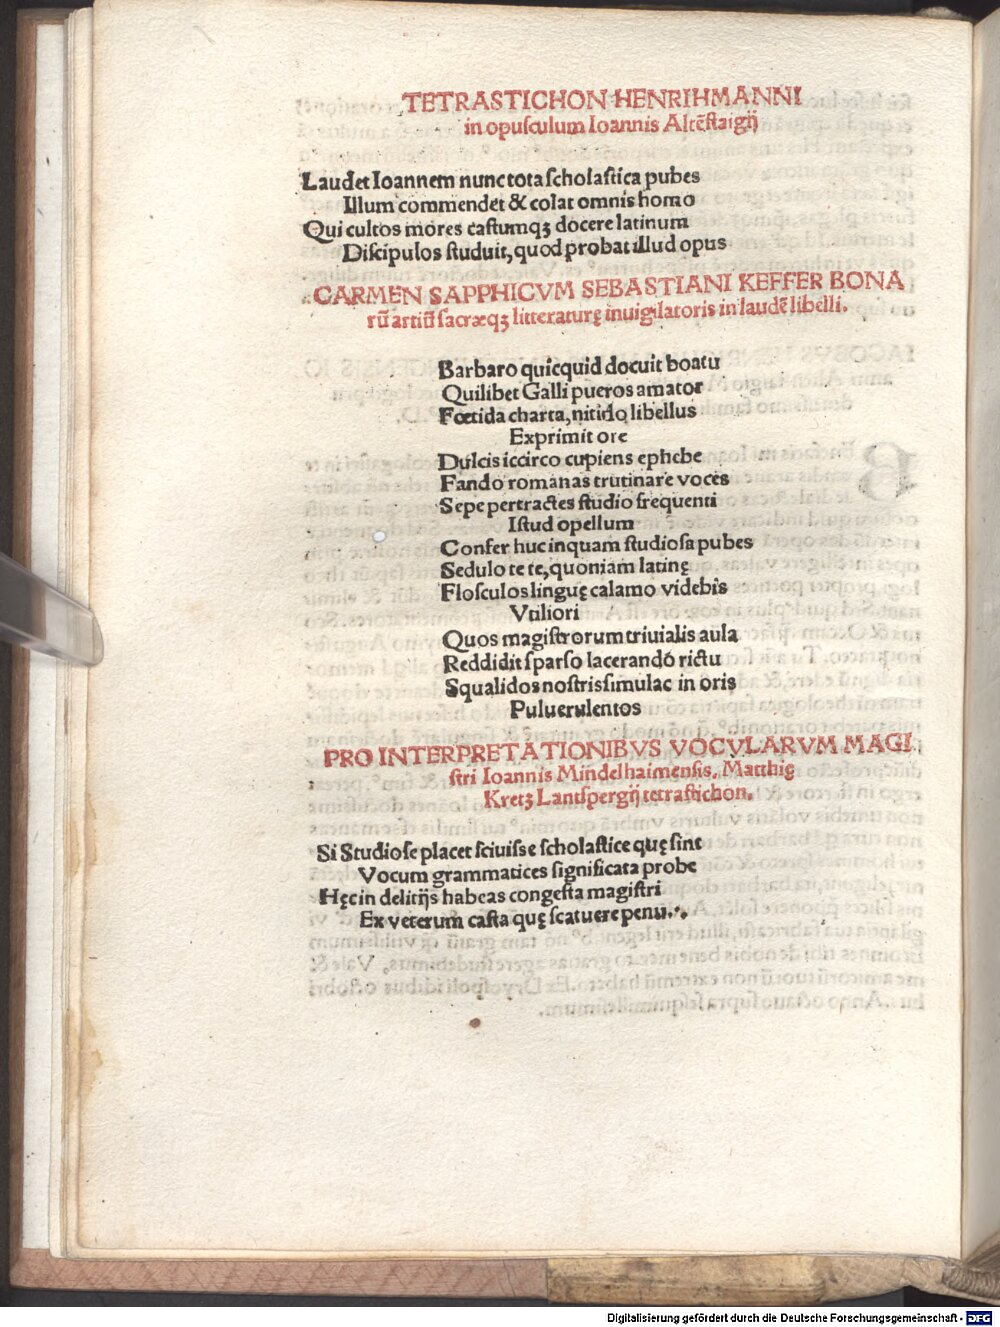 TETRASTICHON HENRIHMANNI
in opuſculum Ioannis Altẽſtaigij
Laudet Ioannem nunc tota ſcholaſtica pubes
Illum commendet & colat omnis homo
Qui cultos mores caſtumqꝫ docere latinum
Diſcipulos ſtuduit, quod probat illud opus
CARMEN SAPPHICVM SEBASTIANI KEFFER BONA
rũ artiũ ſacræqꝫ litteraturę inuigilatoris in laudẽ libelli.
Barbaro quicquid docuit boatu
Quilibet Galli pueros amator
Fœtida charta, nitido libellus
Exprimit ore
Dulcis iccirco cupiens ephebe
Fando romanas trutinare voces
Sepe pertractes ſtudio frequenti
Iſtud opellum
Confer huc inquam ſtudioſa pubes
Sedulo te te, quoniam latinę
Floſculos linguę calamo videbis
Vtiliori
Quos magiſtrorum triuialis aula
Reddidit ſparſo lacerando rictu
Squalidos noſtris ſimulac in oris
Puluerulentos
PRO INTERPRETATIONIBVS VOCVLARVM MAGI
ſtri Ioannis Mindelhaimenſis, Matthię
Kretz Lantſpergij tetraſtichon.
Si Studioſe placet ſciuiſse ſcholaſtice quę ſint
Vocum grammatices ſignificata probe
Hęc in delitijs habeas congeſta magiſtri
Ex veterum caſta quę ſcatuere penu.
Digitalisierung gefördert durch die Deutsche Forschungsgemeinschaft - DFG